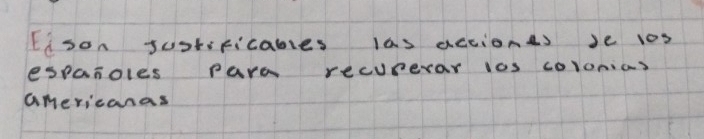 ¿son justificables las acciones de los
españoles para recuperar las colonias
americanas